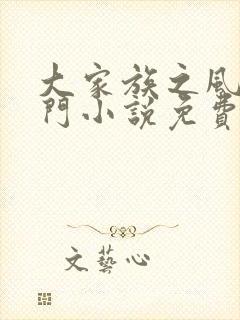 大家族之風
門小說免費
文藝心